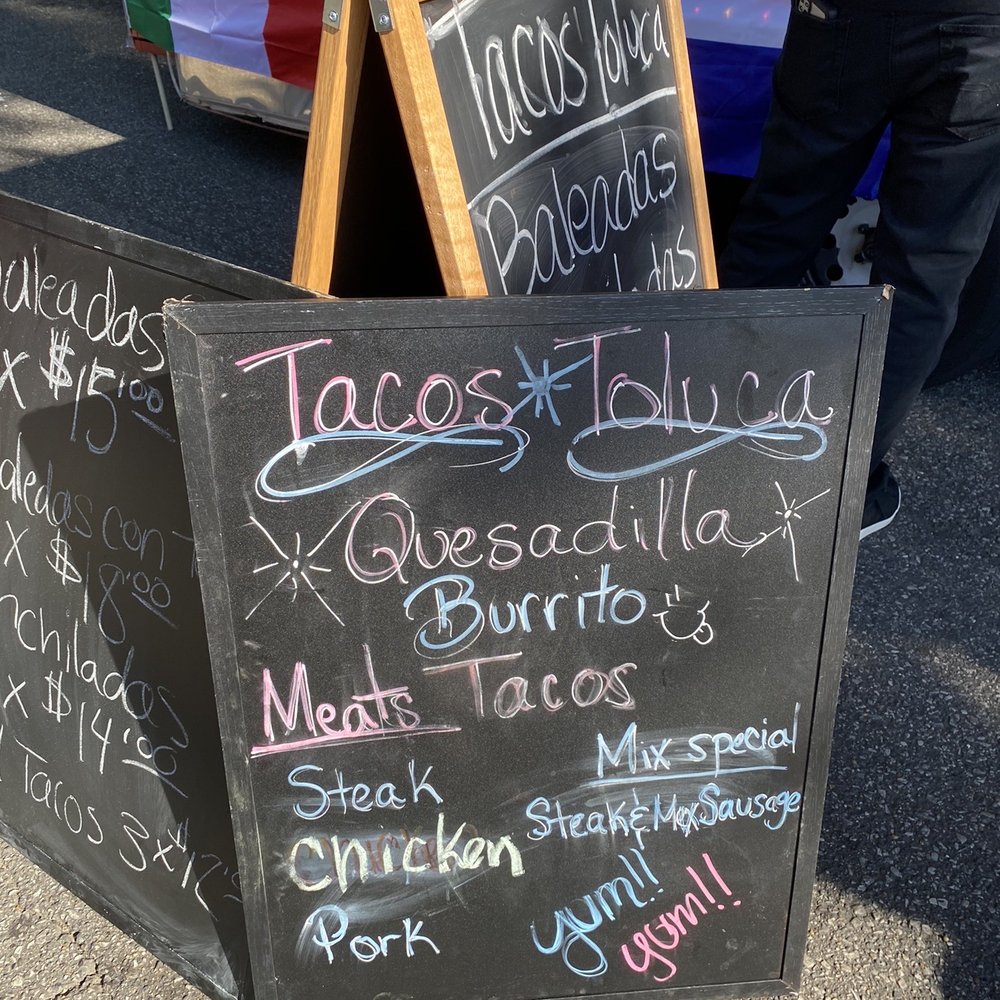 Tacos Toluca
Baleadas
Tacos Toluca
Quesadilla
Burrito
Tacos
Meats
Steak
Chicken
Pork
Mix special
Steak & Mex Sausage
yum!!
yum!!
aleadas
X $15.00
con
X $18.00
nchiladas
X $14.00
Tacos 3x$12